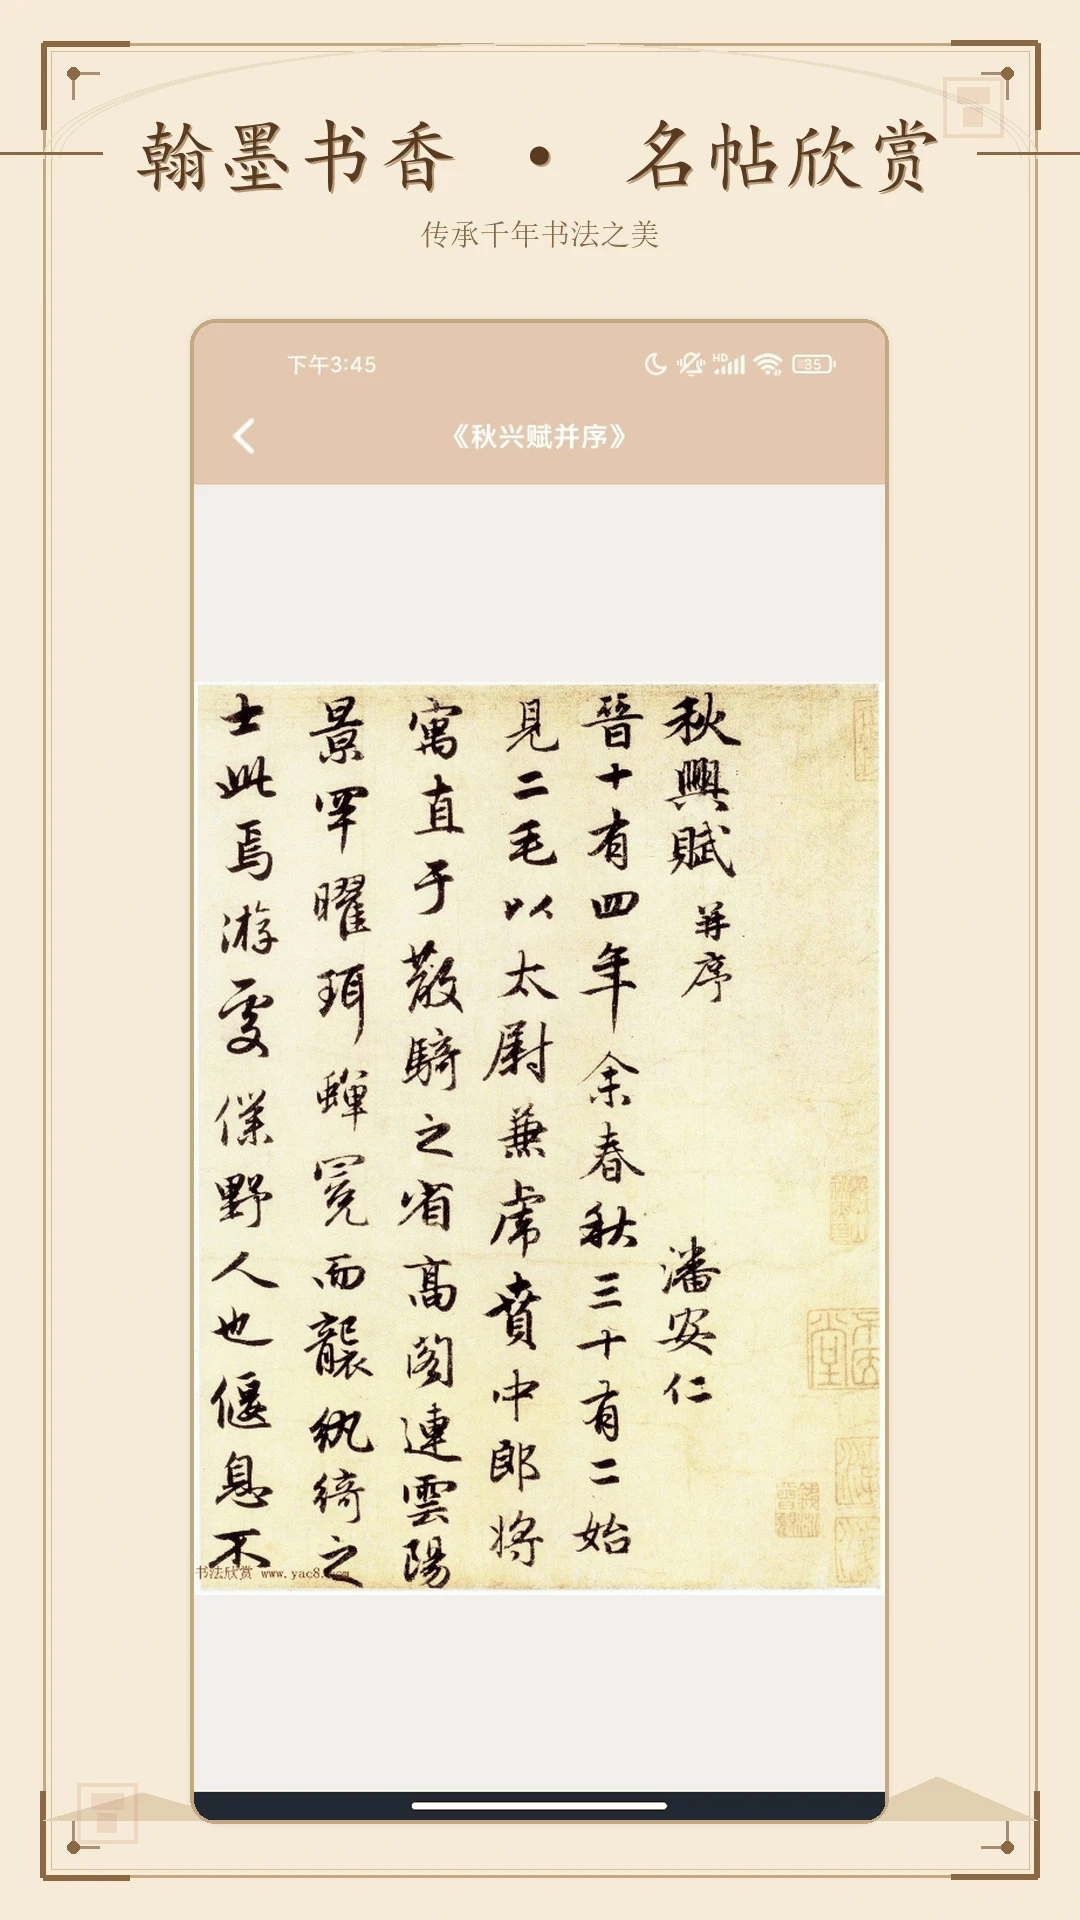 翰墨书香 • 名帖欣赏
传承千年书法之美
下午3:45
HD
35
《秋兴赋并序》
秋興賦 并序 潘安仁
晉十有四年余春秋三十有二始
見二毛以太尉兼虎賁中郎将
寓直于散騎之省高阁連雲陽
景罕曜珥蟬冕而襲紈綺之
士此焉游處僕野人也偃息不
书法欣赏 www.yac8.com